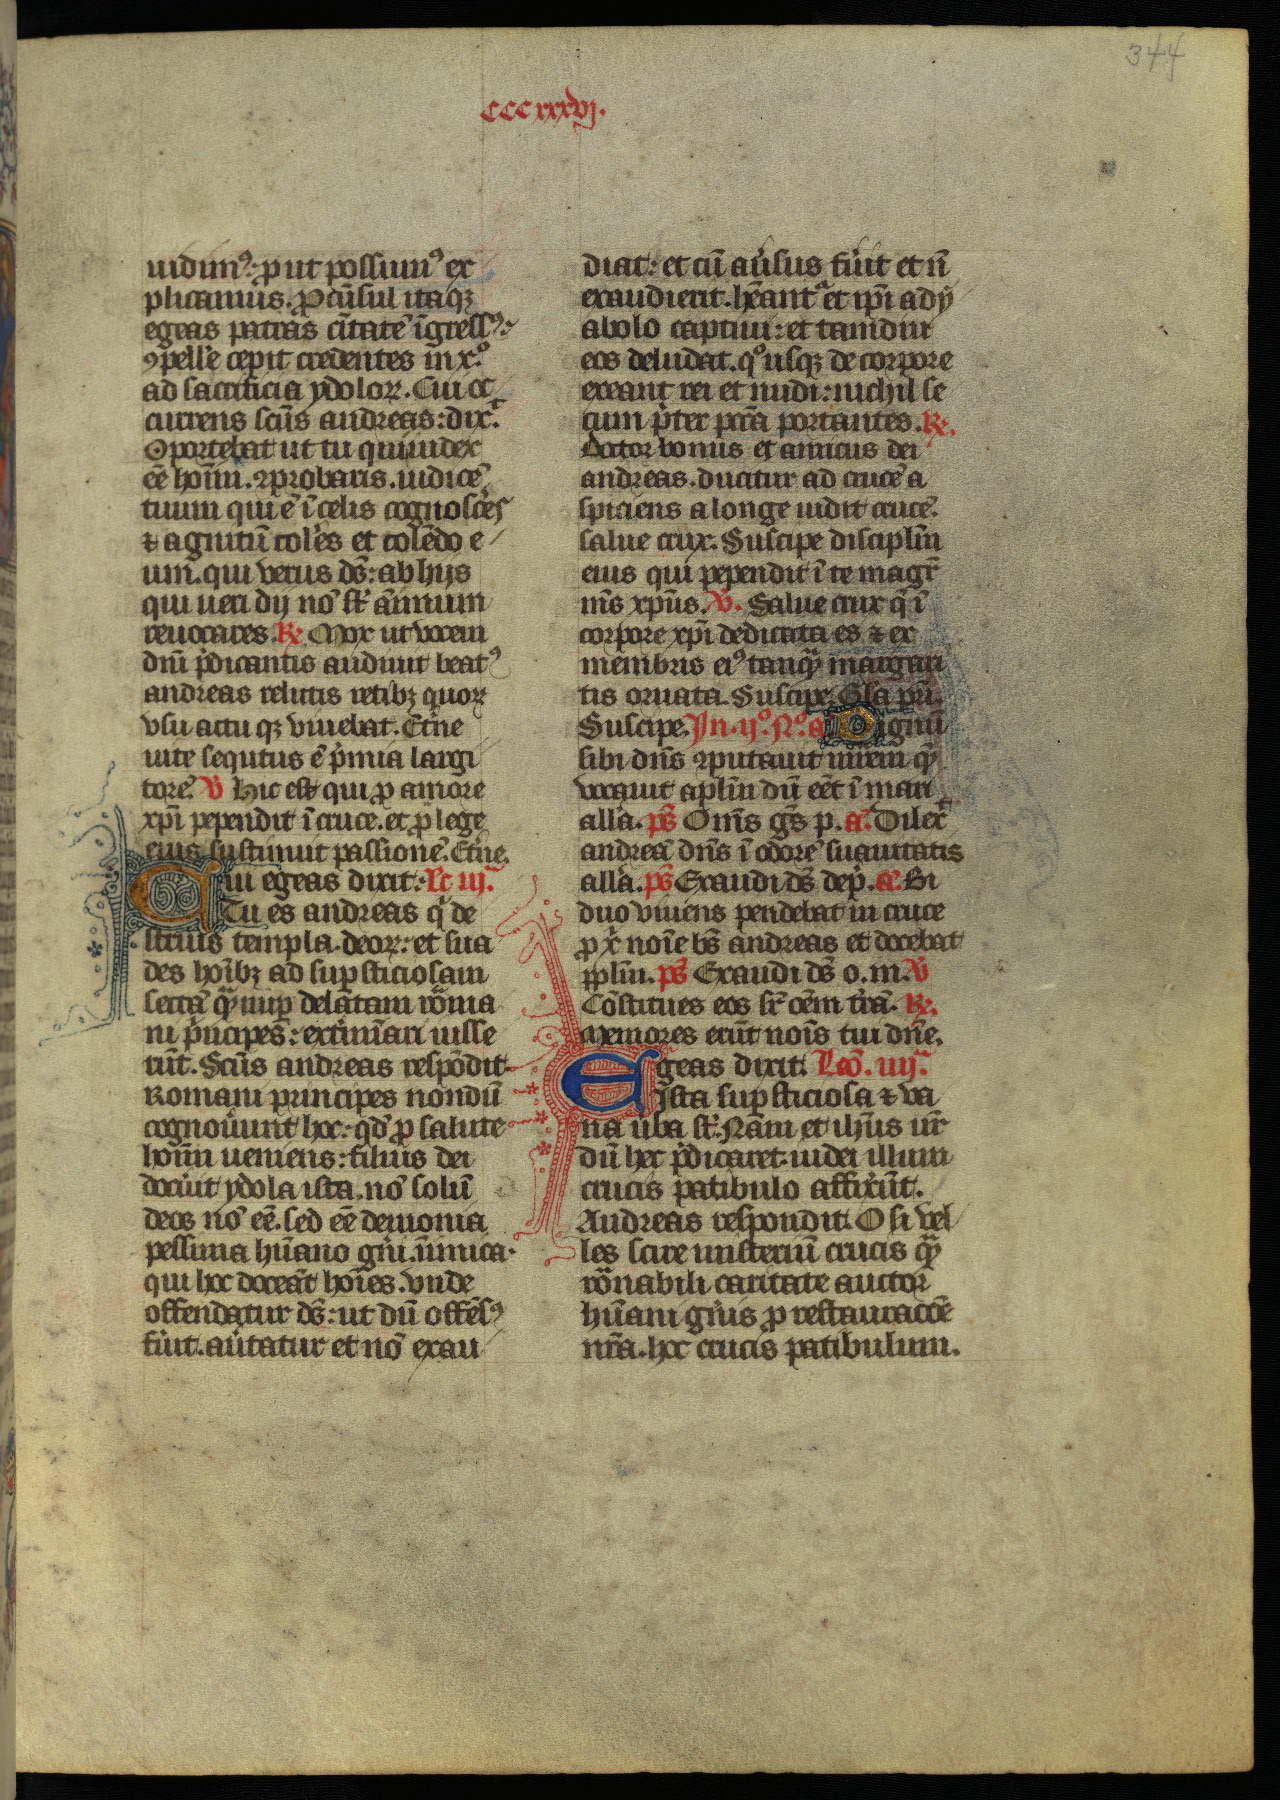 344
cccxxxvj.
uidim⁹: ꝓut possum⁹ ex
plicamus. Ꝓcūsul itaqꝫ
egeas patras ciuitatē īgress⁹:
ꝯpellẽ cepit credentes in x̄º
ad sacrificia ydoloꝝ. Cui oc
currens scūs andreas: dix̄.
Oportebat ut tu qui iudex
eē hoīm. ꝓbaris. iudicē
tuum qui ē ī celis cognoscēs
⁊ agnitū colēs et colēdo e
um. qui verus dṡ: ab hijs
qui ueri dij nō st̄ āmum
reuocares. R̷. Mox ut vocem
dn̄i p̄dicantis audiuit beat⁹
andreas relictis retibꝫ quoꝝ
vsu actu qꝫ viuebat. Et̄ne
uite sequtus ē p̄mia largi
torē. V̷ Hic est qui ꝓ amore
xp̄i pependit ī cruce. et ꝓ lege
eius sustinuit passionē. Et̄ne.
Cui egeas dixit: Lc̄ iij.
Tu es andreas q̄ de
struis templa deoꝝ: et sua
des hoībꝫ ad supsticiosam
sectā q̄ nup delātam rōma
ni p̄ncipes: extīnari iusse
rūt. Scūs andreas respōdit
Romani principes nondū
cognouunt hoc: qd̄ ꝓ salute
hoīm ueniens: filius dei
docuit ydola ista. nō solū
deos nō eē. sed eē demonia
pessima hūano gn̄i. īimica.
qui hoc doceāt hoīes. vnde
offendatur dṡ: ut dū offēs⁹
fu̇it. au̇tatur et nō exau
diat: et cū au̇sus fu̇it et n̄
exaudierit. hēant̄ et ip̄i a dy
abolo captiui: et tamdiu
eos deludat. q°usqꝫ de corpore
exeant rei et nudi: nichil se
cum p̄ter pctā portantes. R̷.
Doctor bonus et amicus dei
andreas. ducitur ad crucē a
spiciens a longe uidit crucē.
salue crux. Suscipe disciplm̄
eius qui pependit ī te magr̄
m̄s xpūs. V̷. Salue crux q̄ ī
corpore xp̄i dedicata es ⁊ ex
membris ei⁹ tanq̄ margari
tis ornata. Suscipe. Gl̄a pri.
Suscipe. Jn .ij°. N°. a Dignū
sibi dn̄s ꝯputauit m̄rem q̄
vocauit aplm̄ dū eēt ī mari
all̄a. pṡ Om̄s gs̄ p. a. Dilex̄
andreā dn̄s ī odorē suauitatis
all̄a. pṡ Exaudi dṡ dep̄. a. Bi
duo viuens pendebat in cruce
ꝓ x̄ noīe bs̄ andreas et docebat
pplm̄. pṡ Exaudi dṡ o. m. V̷
Cōstitues eos sr̄ oēm tr̄ā. R̷.
Memores erūt noīs tui dn̄e.
Egeas dixit. Lcō. iiij.
Ista supsticiosa ⁊ va
na u̇ba st̄. Nam et ihūs ur̄
dū hec p̄dicaret. iudei illum
crucis patibulo affixūt.
Andreas respondit. O si vel
les scire misteriū crucis q̄
rōnabili caritate auctor
hūani gn̄is ꝓ restauracōe
nr̄a. hoc crucis patibulum.